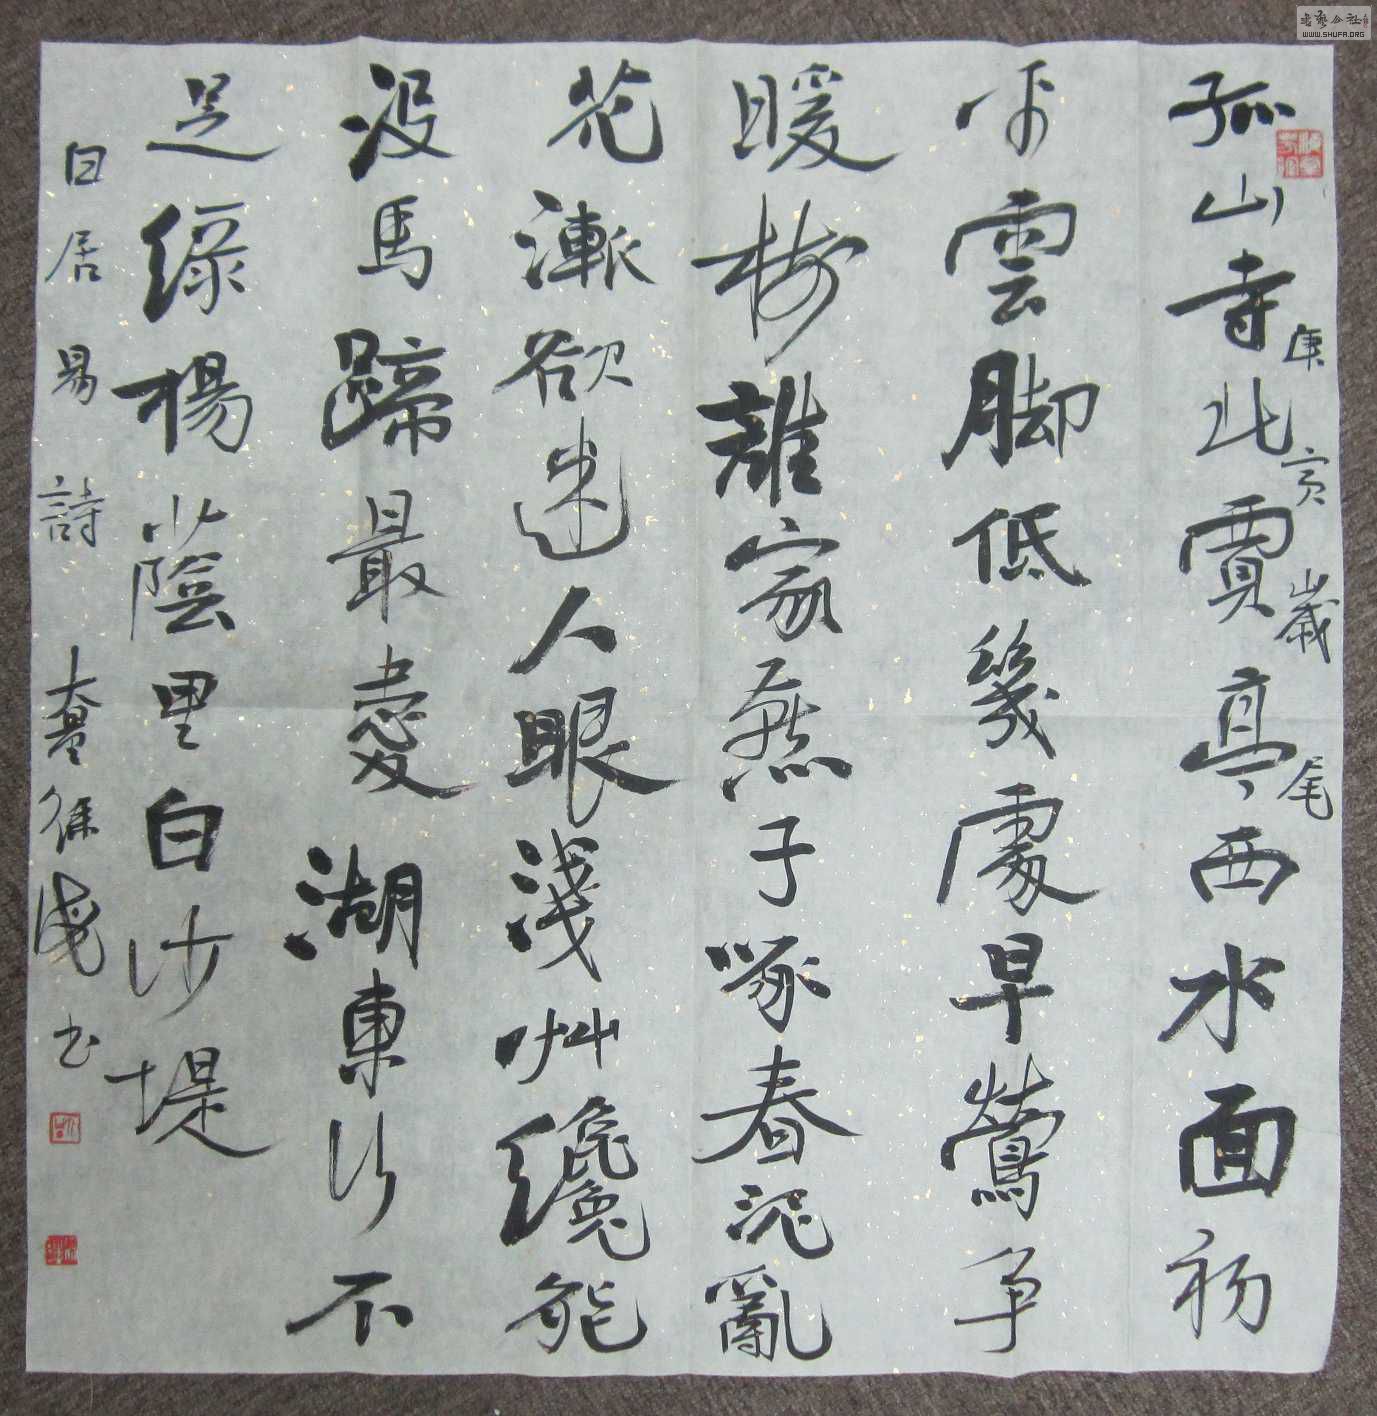 孤山寺北賈亭西水面初
庚寅歲尾
平雲脚低幾處早鶯争
暖樹誰家燕子啄春泥亂
花漸欲迷人眼淺艸纔能
没馬蹄最愛湖東行不
足緑楊蔭里白沙堤
白居易詩 书
书艺公社
WWW.SHUFA.ORG